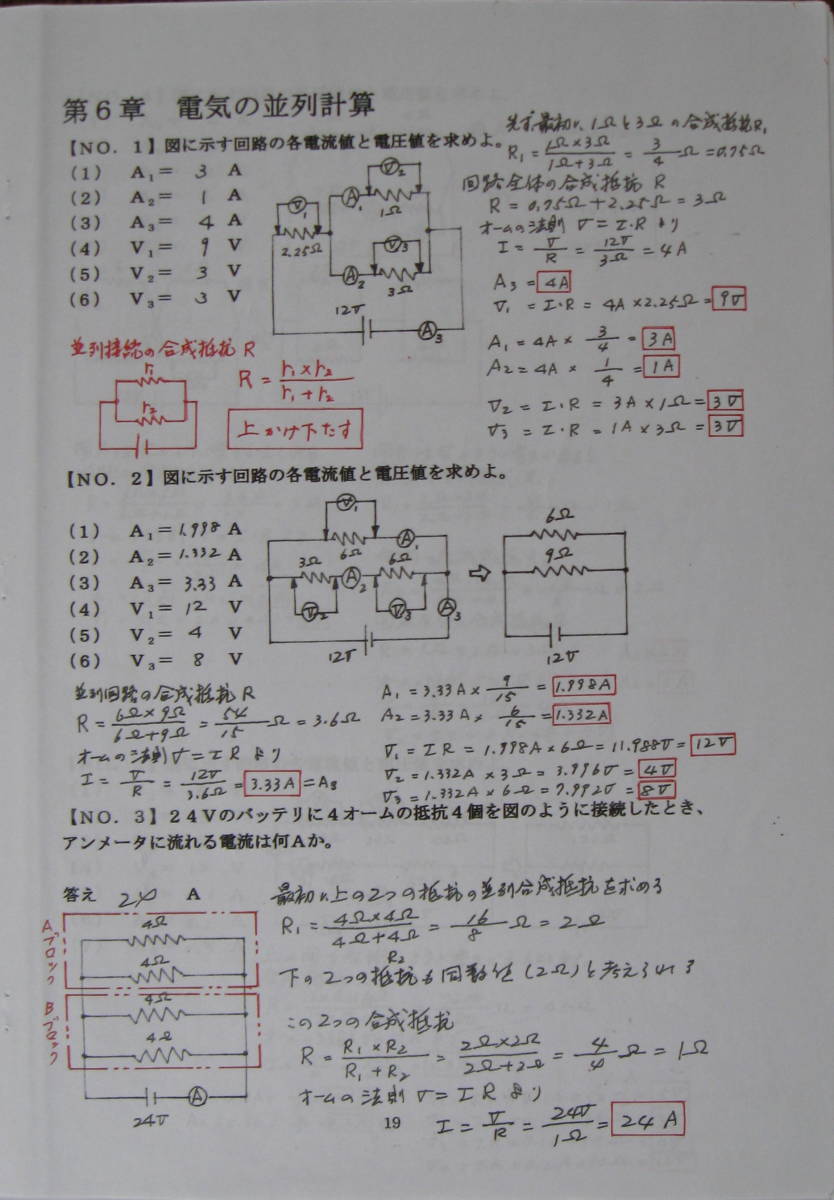 第6章 電気の並列計算
【NO．1】図に示す回路の各電流値と電圧値を求めよ。
(1) A₁＝ 3 A
(2) A₂＝ 1 A
(3) A₃＝ 4 A
(4) V₁＝ 9 V
(5) V₂＝ 3 V
(6) V₃＝ 3 V
V₂
A₁
1Ω
V₁
2.25Ω
V₃
A₂
3Ω
12V
A₃
先ず最初に1Ωと3Ωの合成抵抗R₁
R₁ = 1Ω×3Ω / 1Ω+3Ω = 3/4 Ω = 0.75Ω
回路全体の合成抵抗 R
R = 0.75Ω + 2.25Ω = 3Ω
オームの法則 V = I・R より
I = V/R = 12V/3Ω = 4A
A₃ = 4A
V₁ = I・R = 4A×2.25Ω = 9V
A₁ = 4A × 3/4 = 3A
A₂ = 4A × 1/4 = 1A
V₂ = I・R = 3A×1Ω = 3V
V₃ = I・R = 1A×3Ω = 3V
並列接続の合成抵抗 R
r₁
r₂
R = r₁×r₂ / r₁+r₂
上かけ下たす
【NO．2】図に示す回路の各電流値と電圧値を求めよ。
(1) A₁＝ 1.998 A
(2) A₂＝ 1.332 A
(3) A₃＝ 3.33 A
(4) V₁＝ 12 V
(5) V₂＝ 4 V
(6) V₃＝ 8 V
V₁
6Ω
A₁
3Ω
A₂
6Ω
V₂
V₃
A₃
12V
⇨
6Ω
9Ω
12V
並列回路の合成抵抗 R
R = 6Ω×9Ω / 6Ω+9Ω = 54/15 Ω = 3.6Ω
オームの法則 V = IR より
I = V/R = 12V/3.6Ω = 3.33A = A₃
A₁ = 3.33A × 9/15 = 1.998A
A₂ = 3.33A × 6/15 = 1.332A
V₁ = IR = 1.998A×6Ω = 11.988V = 12V
V₂ = 1.332A × 3Ω = 3.996V = 4V
V₃ = 1.332A × 6Ω = 7.992V = 8V
【NO．3】24Vのバッテリに4オームの抵抗4個を図のように接続したとき、
アンメータに流れる電流は何Aか。
答え 24 A
Aブロック
4Ω
4Ω
Bブロック
4Ω
4Ω
24V
A
最初に上の2つの抵抗の並列合成抵抗を求める
R₁ = 4Ω×4Ω / 4Ω+4Ω = 16/8 Ω = 2Ω
R₂
下の2つの抵抗も同数値(2Ω)と考えられる
この2つの合成抵抗
R = R₁×R₂ / R₁+R₂ = 2Ω×2Ω / 2Ω+2Ω = 4/4 Ω = 1Ω
オームの法則 V = IR より
I = V/R = 24V/1Ω = 24A
19